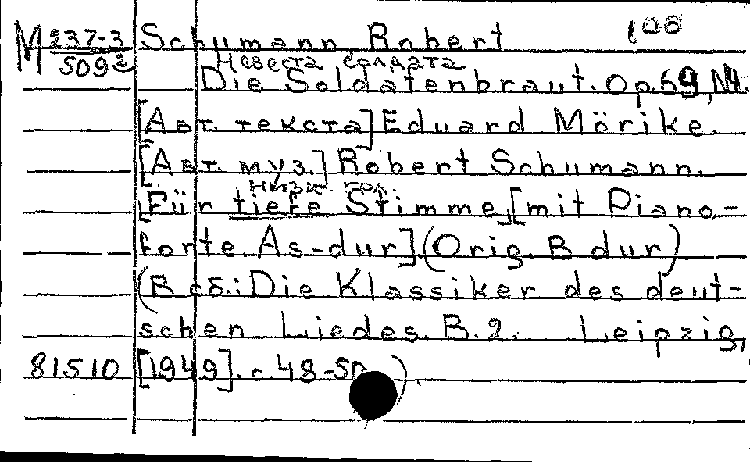 M 237-3 Schumann, Robert 100
509² Невеста солдата
Die Soldatenbraut. Op.69, N4.
[Авт. текста] Eduard Mörike.
[Авт. муз.] Robert Schumann.
низк. гол.
Für tiefe Stimme [mit Piano-
forte As-dur] (Orig. B dur)
(В сб.: Die Klassiker des deut-
schen Liedes. B.2. Leipzig,
81510 [1949]. c 48-50 ).